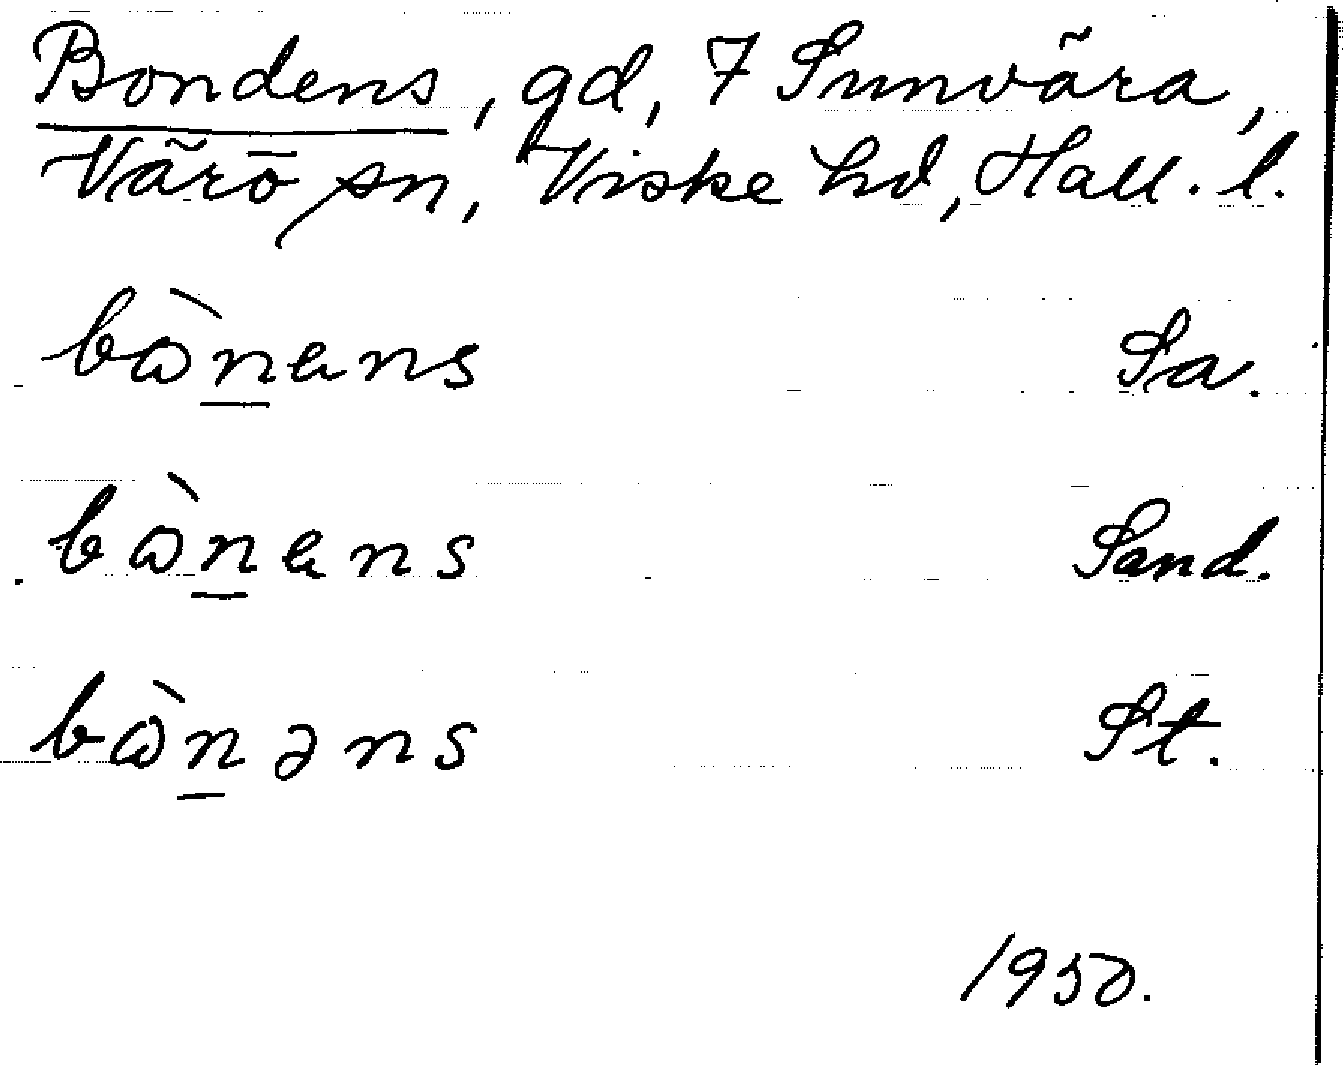 Bondens, gd, 7 Sunvära,
Värö sn, Viske hd, Hall. l.
bὼn̲ɐns Sa.
bὼn̲ɐns Sand.
bὼn̲əns St.
1950.